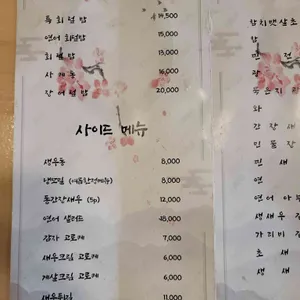 특 회덮밥 19,500
연어 회덮밥 15,000
회덮밥 13,000
사케동 16,000
장어덮밥 20,000
사이드 메뉴
새우동 8,000
8,000
통간장새우 (5p) 12,000
연어 샐러드 18,000
감자 고로케 7,000
새우크림 고로케 6,000
게살크림 고로케 6,000
새우튀김 11,000
참치뱃살초
밥
민 전
광
화
간장새
민물장
민 새
연
연어아
생새우
가리비
초 새
생 새